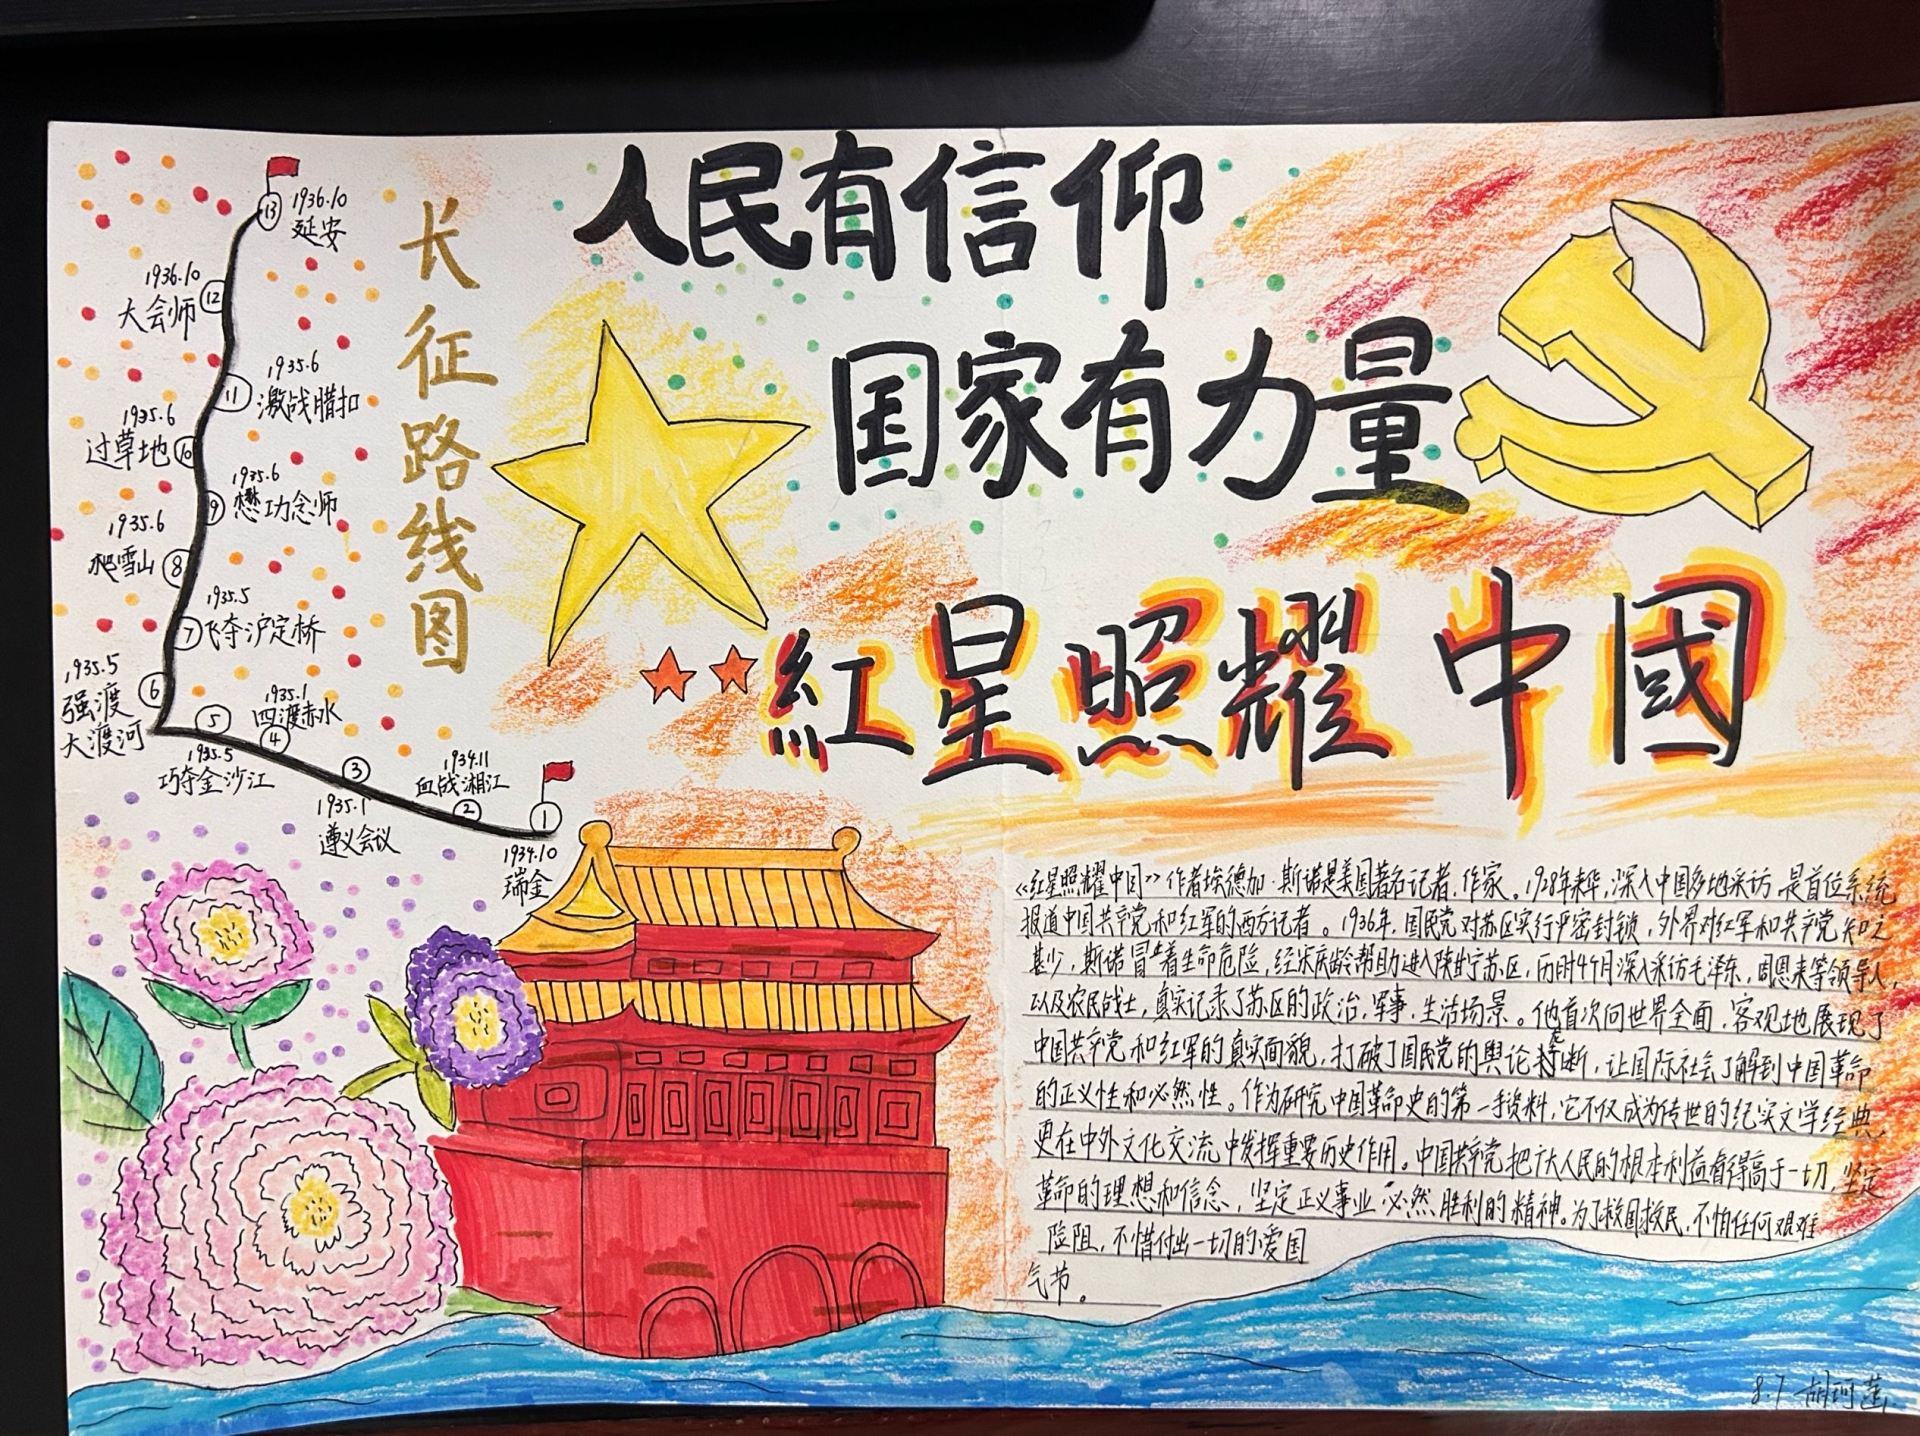 人民有信仰
国家有力量
紅星照耀中國
长征路线图
⑬ 1936.10
延安
1936.10
⑫
大会师
1935.6
⑪ 激战腊扣
1935.6
过草地 ⑩
1935.6
⑨ 懋功念师
1935.6
爬雪山 ⑧
1935.5
⑦ 飞夺沪定桥
1935.5
⑥
强渡
大渡河
⑤
1935.5
巧夺金沙江
1935.1
四渡赤水
④
③
1935.1
遵义会议
1934.11
血战湘江
②
①
1934.10
瑞金
《红星照耀中国》作者埃德加·斯诺是美国著名记者、作家。1928年来华,深入中国多地采访,是首位系统
报道中国共产党和红军的西方记者。1936年,国民党对苏区实行严密封锁,外界对红军和共产党知之
甚少,斯诺冒着生命危险,经宋庆龄帮助进入陕甘宁苏区,历时4个月深入采访毛泽东、周恩来等领导人,
以及农民战士,真实记录了苏区的政治,军事,生活场景。他首次向世界全面,客观地展现了
中国共产党和红军的真实面貌,打破了国民党的舆论垄断,让国际社会了解到中国革命
的正义性和必然性。作为研究中国革命史的第一手资料,它不仅成为传世的纪实文学经典,
更在中外文化交流中发挥重要历史作用。中国共产党把广大人民的根本利益看得高于一切,坚定
革命的理想和信念,坚定正义事业必然胜利的精神。为了救国救民,不怕任何艰难
险阻,不惜付出一切的爱国
气节。
8.7 胡珂